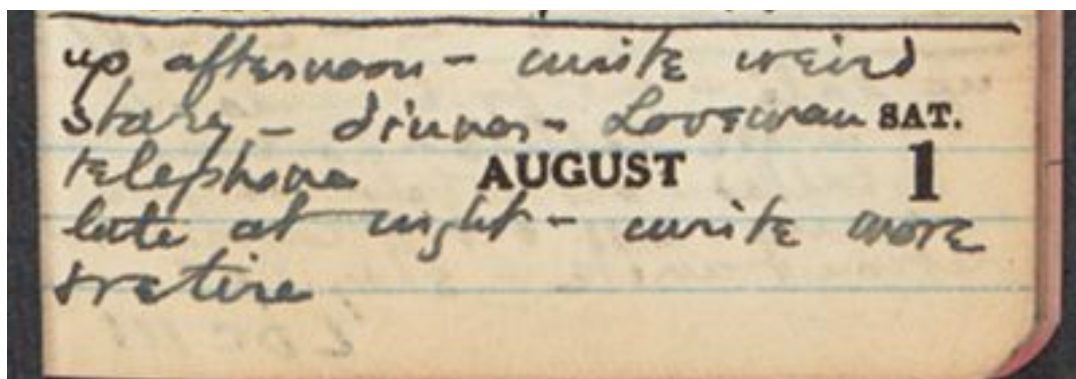 up afternoon – write weird
story – dinner – Loveman SAT.
telephone AUGUST 1
late at night – write more
& retire